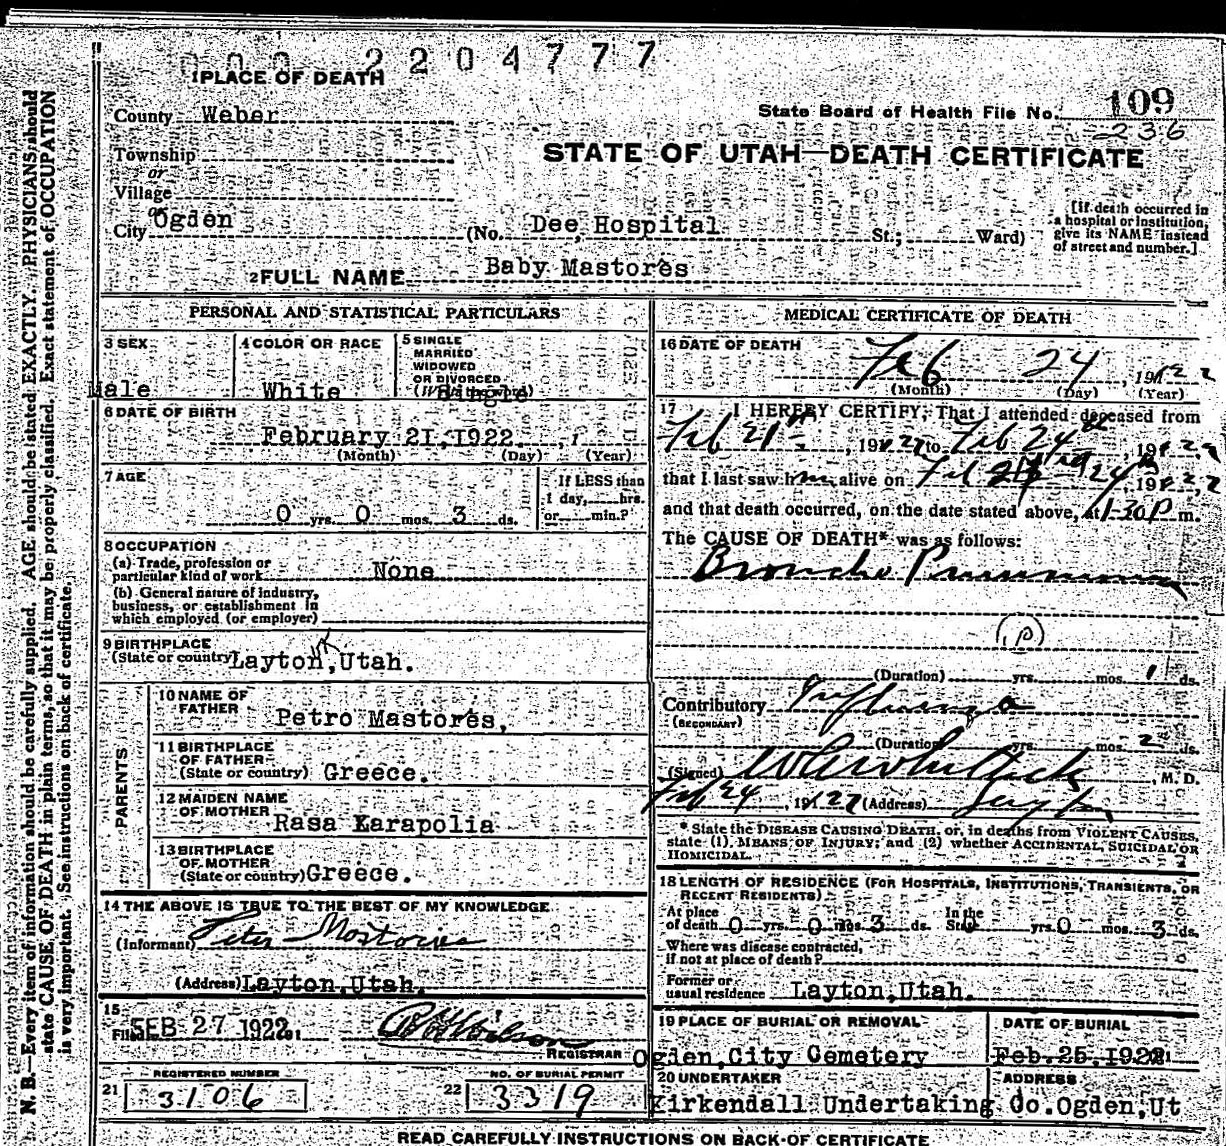 000 2204777
1 PLACE OF DEATH
County Weber
State Board of Health File No. 109
236
Township
or
Village
or
City Ogden (No. Dee Hospital St.; Ward)
STATE OF UTAH—DEATH CERTIFICATE
[If death occurred in
a hospital or institution,
give its NAME instead
of street and number.]
2 FULL NAME Baby Mastores
PERSONAL AND STATISTICAL PARTICULARS
3 SEX
Male
4 COLOR OR RACE
White
5 SINGLE
MARRIED
WIDOWED
OR DIVORCED
Single
6 DATE OF BIRTH
February 21, 1922
(Month) (Day) (Year)
7 AGE
0 yrs. 0 mos. 3 ds.
If LESS than
1 day, hrs.
or min.?
8 OCCUPATION
(a) Trade, profession or
particular kind of work None
(b) General nature of industry,
business, or establishment in
which employed (or employer)
9 BIRTHPLACE
(State or country) Layton, Utah.
PARENTS
10 NAME OF
FATHER Petro Mastores,
11 BIRTHPLACE
OF FATHER
(State or country) Greece.
12 MAIDEN NAME
OF MOTHER Rasa Karapolia
13 BIRTHPLACE
OF MOTHER
(State or country) Greece.
14 THE ABOVE IS TRUE TO THE BEST OF MY KNOWLEDGE
(Informant) Peter
(Address) Layton, Utah.
15
Filed FEB 27 1922
Wilson
REGISTRAR
21 REGISTERED NUMBER
3106
22 NO. OF BURIAL PERMIT
3319
MEDICAL CERTIFICATE OF DEATH
16 DATE OF DEATH
Feb 24, 1922
(Month) (Day) (Year)
17 I HEREBY CERTIFY, That I attended deceased from
Feb 21st, 1922 to Feb 24th 1922
that I last saw him alive on Feb 24th 1922
and that death occurred, on the date stated above, at 1-30 P m.
The CAUSE OF DEATH* was as follows:
Broncho Pneumonia
(P)
(Duration) yrs. mos. 1 ds.
Contributory Influenza
(SECONDARY)
(Duration) yrs. mos. 2 ds.
(Signed) M. D.
Feb 24, 1922 (Address)
* State the DISEASE CAUSING DEATH, or, in deaths from VIOLENT CAUSES,
state (1) MEANS OF INJURY; and (2) whether ACCIDENTAL, SUICIDAL OR
HOMICIDAL.
18 LENGTH OF RESIDENCE (FOR HOSPITALS, INSTITUTIONS, TRANSIENTS, OR
RECENT RESIDENTS)
At place
of death 0 yrs. 0 mos. 3 ds. In the
State 0 yrs. 0 mos. 3 ds.
Where was disease contracted,
if not at place of death?
Former or
usual residence Layton, Utah.
19 PLACE OF BURIAL OR REMOVAL
Ogden, City Cemetery
DATE OF BURIAL
Feb. 25, 1922
20 UNDERTAKER
Kirkendall Undertaking Co.
ADDRESS
Ogden, Ut
READ CAREFULLY INSTRUCTIONS ON BACK OF CERTIFICATE
N. B.—Every item of information should be carefully supplied. AGE should be stated EXACTLY. PHYSICIANS should
state CAUSE OF DEATH in plain terms, so that it may be properly classified. Exact statement of OCCUPATION
is very important. See instructions on back of certificate.